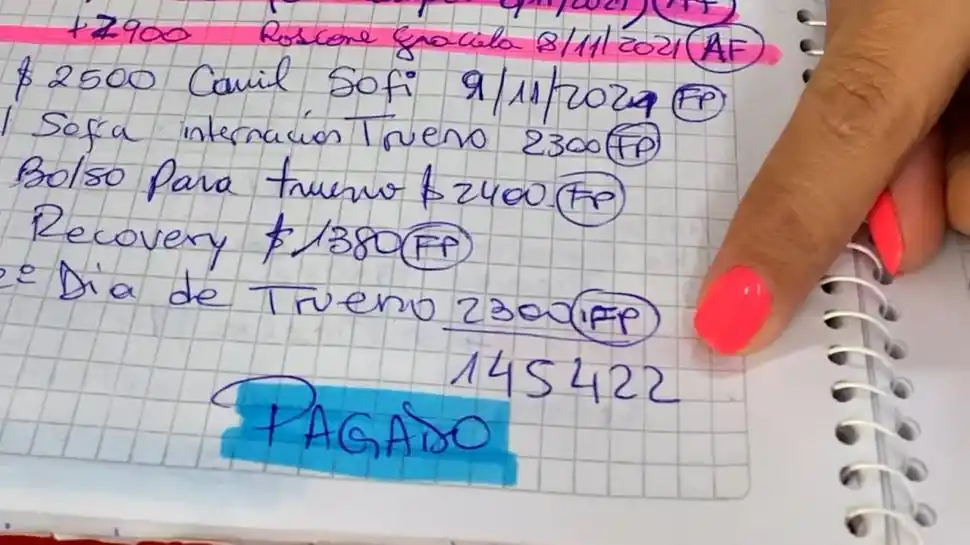 2021) AF
+2900 Roscone Graciela 8/11/2021 AF
$ 2500 Cavil Sofi 9/11/2021 FP
Sofía internación Trueno 2300 FP
Bolso Para trueno $ 2400 FP
Recovery $ 1380 FP
2º Dia de Trueno 2300 FP
145422
PAGADO